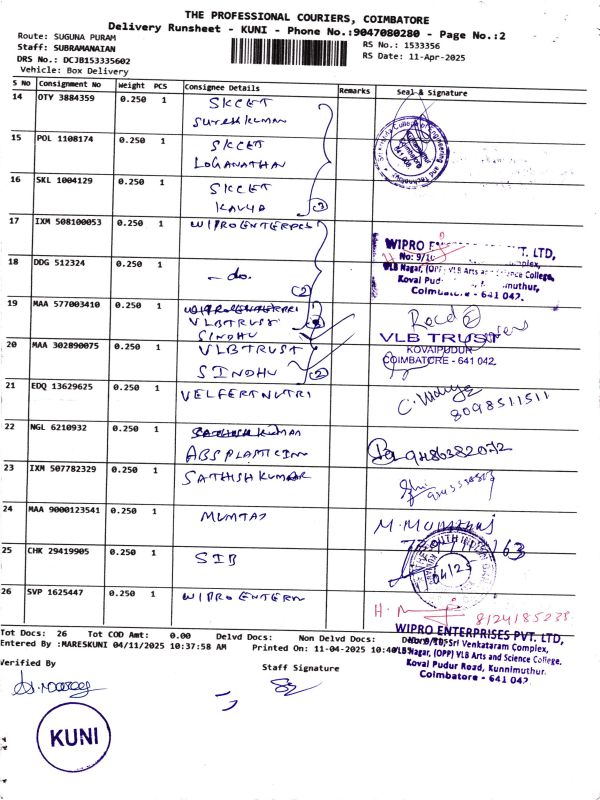 THE PROFESSIONAL COURIERS, COIMBATORE
Delivery Runsheet - KUNI - Phone No.:9047080280 - Page No.:2
Route: SUGUNA PURAM
RS No.: 1533356
Staff: SUBRAMANAIAN
RS Date: 11-Apr-2025
DRS No.: DCJB153335602
Vehicle: Box Delivery
S No Consignment No Weight PCS Consignee Details Remarks Seal & Signature
14 OTY 3884359 0.250 1 SKCET
SURESH KUMAR
15 POL 1108174 0.250 1 SKCET
LOGANATHAN
16 SKL 1004129 0.250 1 SKCET
KAVYA (3)
17 IXM 508100053 0.250 1 WIPRO ENTERPRS
WIPRO ENTERPRISES PVT. LTD,
VLB Nagar, (OPP) VLB Arts and Science College,
Coimbatore - 641 042.
18 DDG 512324 0.250 1 - do. (2)
19 MAA 577003410 0.250 1 WIPRO ENTERPRI
VLB TRUST
SINDHU
Recd (2)
VLB TRUST
KOVAIPUDUR
COIMBATORE - 641 042.
20 MAA 302890075 0.250 1 VLB TRUST
SINDHU (2)
21 EDQ 13629625 0.250 1 VELFERT NUTRI
8098511511
22 NGL 6210932 0.250 1 SATHISH KUMAR
ABS PLASTIC IN
9486382072
23 IXM 507782329 0.250 1 SATHISH KUMAR
24 MAA 9000123541 0.250 1 MUMTAJ
M. Mumthaj
25 CHK 29419905 0.250 1 SIB
26 SVP 1625447 0.250 1 WIPRO ENTERN
8124185238
Tot Docs: 26 Tot COD Amt: 0.00 Delvd Docs: Non Delvd Docs:
Entered By :MARESKUNI 04/11/2025 10:37:58 AM Printed On: 11-04-2025 10:40
WIPRO ENTERPRISES PVT. LTD,
No: 9/10, Sri Venkataram Complex,
VLB Nagar, (OPP) VLB Arts and Science College.
Koval Pudur Road, Kunnimuthur.
Coimbatore - 641 042.
Verified By
Staff Signature
KUNI